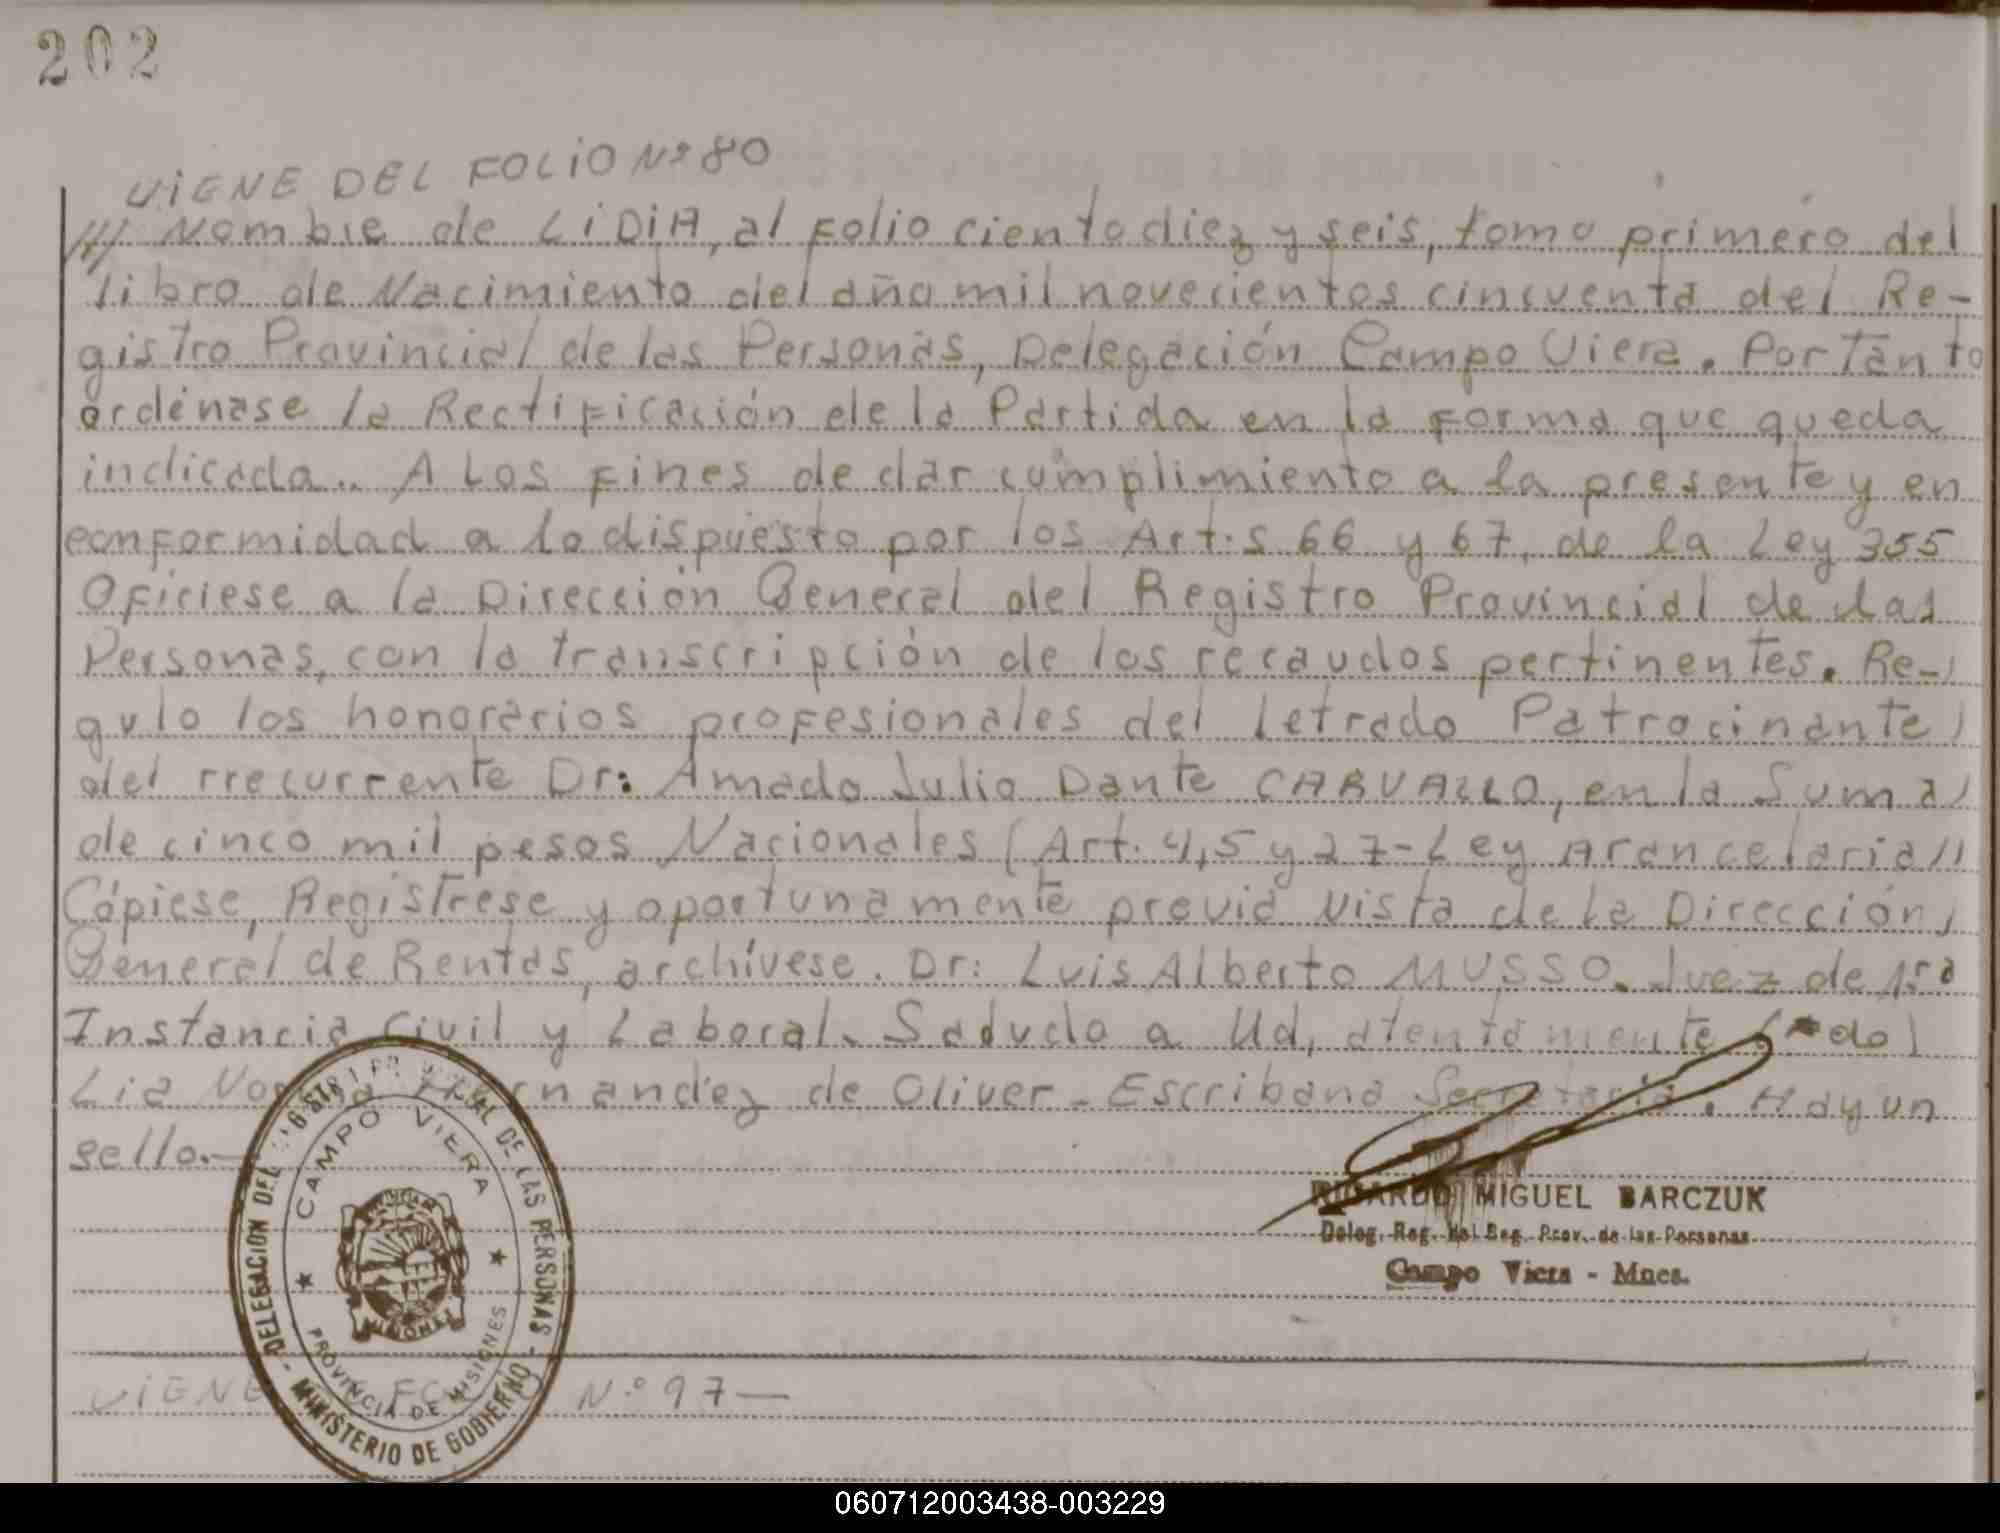 202
VIENE DEL FOLIO Nº 80
/// Nombre de LIDIA, al Folio ciento diez y seis, tomo primero del
libro de Nacimiento del año mil novecientos cincuenta del Re-
gistro Provincial de las Personas, Delegación Campo Viera. Por Tanto
ordénase la Rectificación de la Partida en la forma que queda
indicada.. A Los fines de dar cumplimiento a la presente y en
conformidad a lo dispuesto por los Art.s 66 y 67, de la Ley 355
Ofíciese a la Dirección General del Registro Provincial de las
Personas, con la transcripción de los recaudos pertinentes. Re-/
gulo los honorarios profesionales del Letrado Patrocinante/
del rrecurrente Dr: Amado Julio Dante CARVALLO, en la Suma/
de cinco mil pesos Nacionales (Art. 4,5 y 27-Ley Arancelaria//
Cópiese, Regístrese y oportunamente previa vista de la Dirección/
General de Rentas, archívese. Dr: Luis Alberto MUSSO. Juez de 1ra
Instancia Civil y Laboral. Saduda a Ud, atentamente do/
Lia de Oliver - Escribana Secretaria. Hay un
sello.-
RICARDO MIGUEL BARCZUK
Deleg. Reg. del Reg. Prov. de las Personas
Campo Viera - Mnes.
DELEGACION DEL REGISTRO PROVINCIAL DE LAS PERSONAS - MINISTERIO DE GOBIERNO -
CAMPO VIERA
PROVINCIA DE MISIONES
VIENE N.º 97-
060712003438-003229